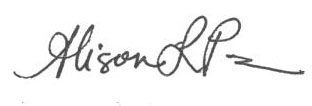 Alison L P